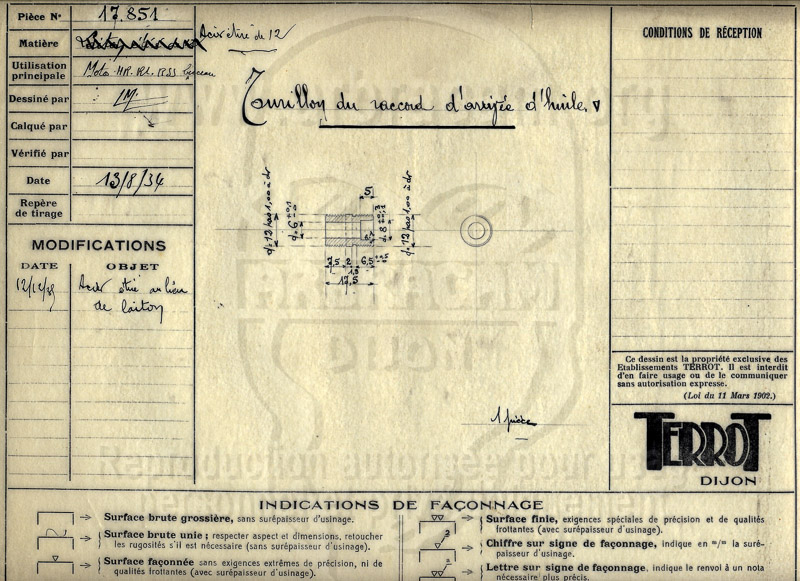 Pièce N° 17.851
Matière Acier étiré de 12
Utilisation principale Motos HR. RL. RSS
Dessiné par LM
Calqué par
Vérifié par
Date 13/8/34
Repère de tirage
MODIFICATIONS
DATE OBJET
Acier étiré au lieu
de laiton
Tourillon du raccord d'arrivée d'huile.
5
7,5 2 6,5
1,5
17,5
1 pièce
CONDITIONS DE RÉCEPTION
Ce dessin est la propriété exclusive des
Etablissements TERROT. Il est interdit
d'en faire usage ou de le communiquer
sans autorisation expresse.
(Loi du 11 Mars 1902.)
TERROT
DIJON
INDICATIONS DE FAÇONNAGE
Surface brute grossière, sans surépaisseur d'usinage.
Surface brute unie ; respecter aspect et dimensions, retoucher
les rugosités s'il est nécessaire (sans surépaisseur d'usinage).
Surface façonnée sans exigences extrêmes de précision, ni de
qualités frottantes (avec surépaisseur d'usinage).
Surface finie, exigences spéciales de précision et de qualités
frottantes (avec surépaisseur d'usinage).
Chiffre sur signe de façonnage, indique en m/m la suré-
paisseur d'usinage.
Lettre sur signe de façonnage, indique le renvoi à un nota
nécessaire plus précis.